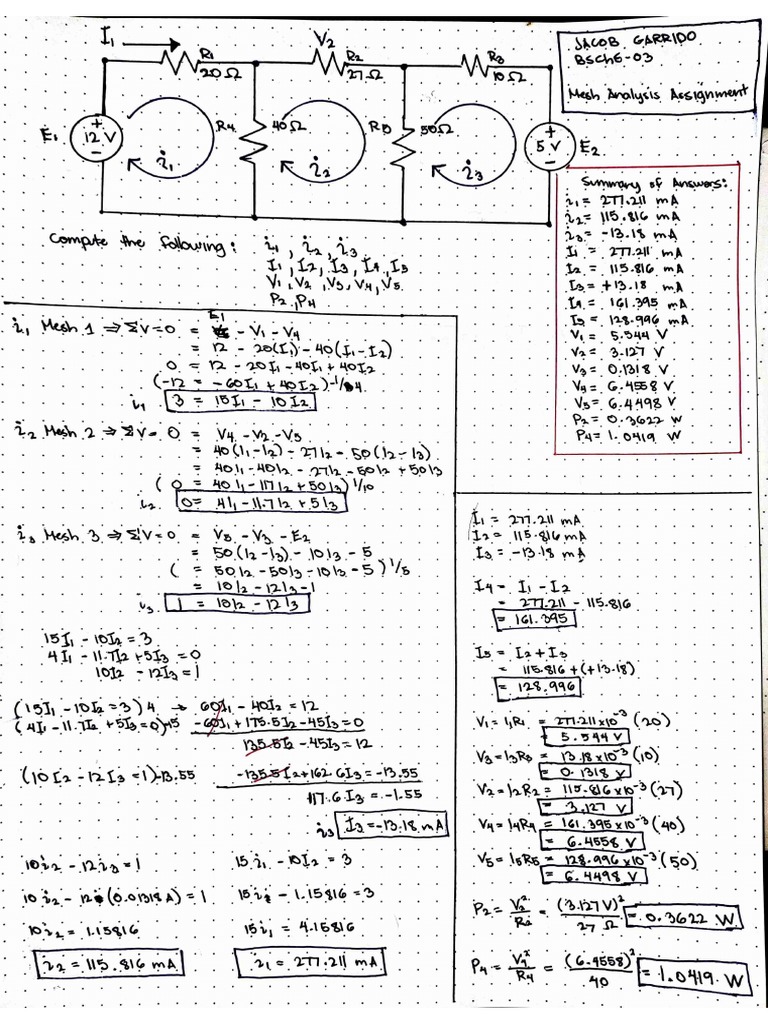 I₁
R₁
20Ω
V₂
R₂
27Ω
R₃
10Ω
JACOB GARRIDO
BSChE-03
Mesh Analysis Assignment
E₁
12 V
+
-
R₄
40Ω
R5
50Ω
5 V
+
-
E₂
i₁
i₂
i₃
Compute the following: i₁, i₂, i₃
I₁, I2, I3, I4, I5
V₁, V₂, V3, V4, V5
P2, P4
Summary of Answers:
i₁ = 277.211 mA
i₂ = 115.816 mA
i₃ = -13.18 mA
I₁ = 277.211 mA
I2 = 115.816 mA
I3 = +13.18 mA
I4 = 161.395 mA
I5 = 128.996 mA
V₁ = 5.544 V
V₂ = 3.127 V
V₃ = 0.1318 V
V₄ = 6.4558 V
V5 = 6.4498 V
P2 = 0.3622 W
P4 = 1.0419 W
i₁ Mesh 1 ⇒ ΣV=0 = E₁ - V₁ - V₄
= 12 - 20(I₁) - 40(I₁-I₂)
0 = 12 - 20I₁ - 40I₁ + 40I2
(-12 = -60I₁ + 40I2)-1/4
i₁ 3 = 15I₁ - 10I2
i₂ Mesh 2 ⇒ ΣV= 0 = V4 - V2 - V5
= 40(I₁-I₂) - 27I₂ - 50(I₂-I₃)
= 40I₁ - 40I₂ - 27I₂ - 50I₂ + 50I₃
( 0 = 40I₁ - 117I₂ + 50I₃)1/10
i₂ 0 = 4I₁ - 11.7I₂ + 5I₃
i₃ Mesh 3 ⇒ ΣV=0 = V5 - V3 - E2
= 50(I₂-I₃) - 10I₃ - 5
( = 50I₂ - 50I₃ - 10I₃ - 5)1/5
= 10I₂ - 12I₃ - 1
i₃ 1 = 10I₂ - 12I₃
15I₁ - 10I2 = 3
4I₁ - 11.7I2 + 5I3 = 0
10I2 - 12I3 = 1
(15I₁ - 10I2 = 3)4 → 60I₁ - 40I2 = 12
(4I₁ - 11.7I2 + 5I3 = 0)-15 -60I₁ + 175.5I2 - 45I3 = 0
135.5I2 - 45I3 = 12
(10I2 - 12I3 = 1)-13.55 -135.5I2 + 162.6I3 = -13.55
117.6I3 = -1.55
i₃ I3 = -13.18 mA
10i₂ - 12i₃ = 1
10i₂ - 12(0.01318A) = 1
10i₂ = 1.15816
i₂ = 115.816 mA
15i₁ - 10I2 = 3
15i₁ - 1.15816 = 3
15i₁ = 4.15816
i₁ = 277.211 mA
I₁ = 277.211 mA
I2 = 115.816 mA
I3 = -13.18 mA
I4 = I₁ - I2
= 277.211 - 115.816
= 161.395
I5 = I2 + I3
= 115.816 + (+13.18)
= 128.996
V₁ = I₁R₁ = 277.211×10⁻³ (20)
= 5.544 V
V3 = I3R3 = 13.18×10⁻³ (10)
= 0.1318 V
V2 = I2R2 = 115.816×10⁻³ (27)
= 3.127 V
V4 = I4R4 = 161.395×10⁻³ (40)
= 6.4558 V
V5 = I5R5 = 128.996×10⁻³ (50)
= 6.4498 V
P2 = V2²/R2 = (3.127V)²/27 Ω = 0.3622 W
P4 = V4²/R4 = (6.4558)²/40 = 1.0419 W